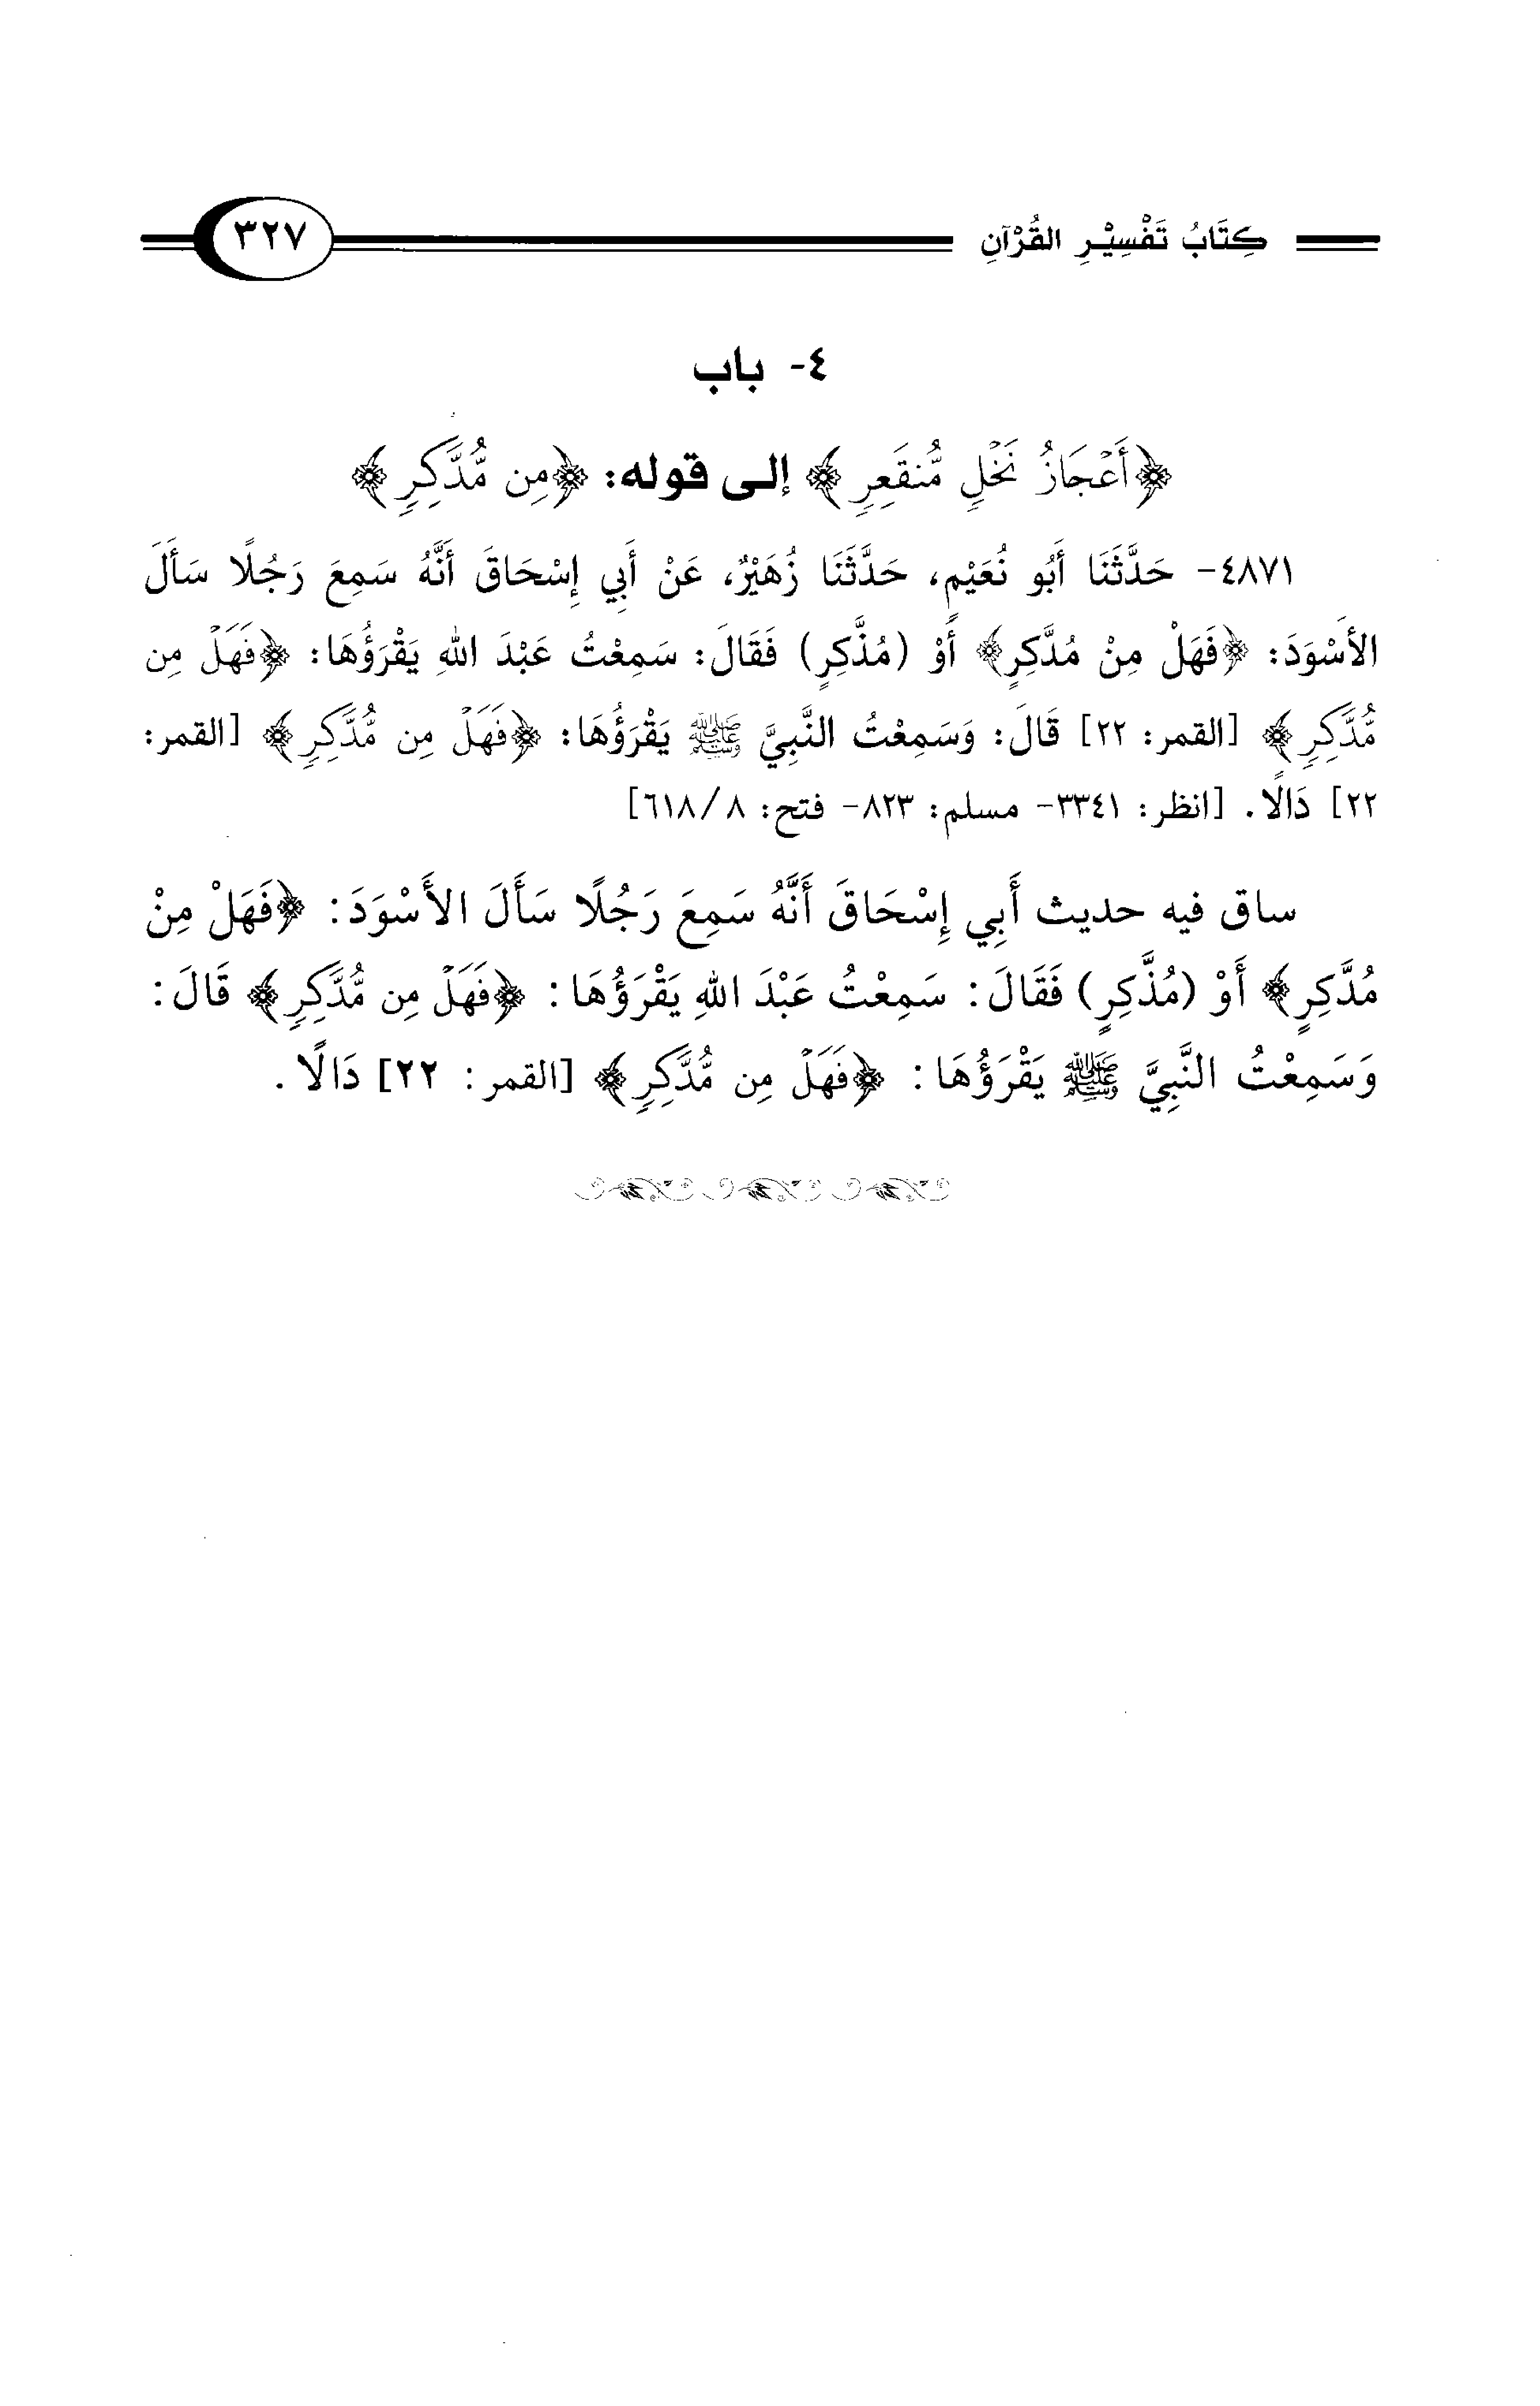 كِتَابُ تَفْسِيْرِ القُرْآنِ ٣٢٧
٤- باب
﴿أَعْجَازُ نَخْلٍ مُّنقَعِرٍ﴾ إلى قوله: ﴿مِن مُّدَّكِرٍ﴾
٤٨٧١- حَدَّثَنَا أَبُو نُعَيْمٍ، حَدَّثَنَا زُهَيْرٌ، عَنْ أَبِي إِسْحَاقَ أَنَّهُ سَمِعَ رَجُلًا سَأَلَ
الأَسْوَدَ: ﴿فَهَلْ مِنْ مُدَّكِرٍ﴾ أَوْ (مُذَّكِرٍ) فَقَالَ: سَمِعْتُ عَبْدَ اللهِ يَقْرَؤُهَا: ﴿فَهَلْ مِن
مُّدَّكِرٍ﴾ [القمر: ٢٢] قَالَ: وَسَمِعْتُ النَّبِيَّ ﷺ يَقْرَؤُهَا: ﴿فَهَلْ مِن مُّدَّكِرٍ﴾ [القمر:
٢٢] دَالًا. [انظر: ٣٣٤١- مسلم: ٨٢٣- فتح: ٨/ ٦١٨]
ساق فيه حديث أَبِي إِسْحَاقَ أَنَّهُ سَمِعَ رَجُلًا سَأَلَ الأَسْوَدَ: ﴿فَهَلْ مِنْ
مُدَّكِرٍ﴾ أَوْ (مُذَّكِرٍ) فَقَالَ: سَمِعْتُ عَبْدَ اللهِ يَقْرَؤُهَا: ﴿فَهَلْ مِن مُّدَّكِرٍ﴾ قَالَ:
وَسَمِعْتُ النَّبِيَّ ﷺ يَقْرَؤُهَا: ﴿فَهَلْ مِن مُّدَّكِرٍ﴾ [القمر: ٢٢] دَالًا.